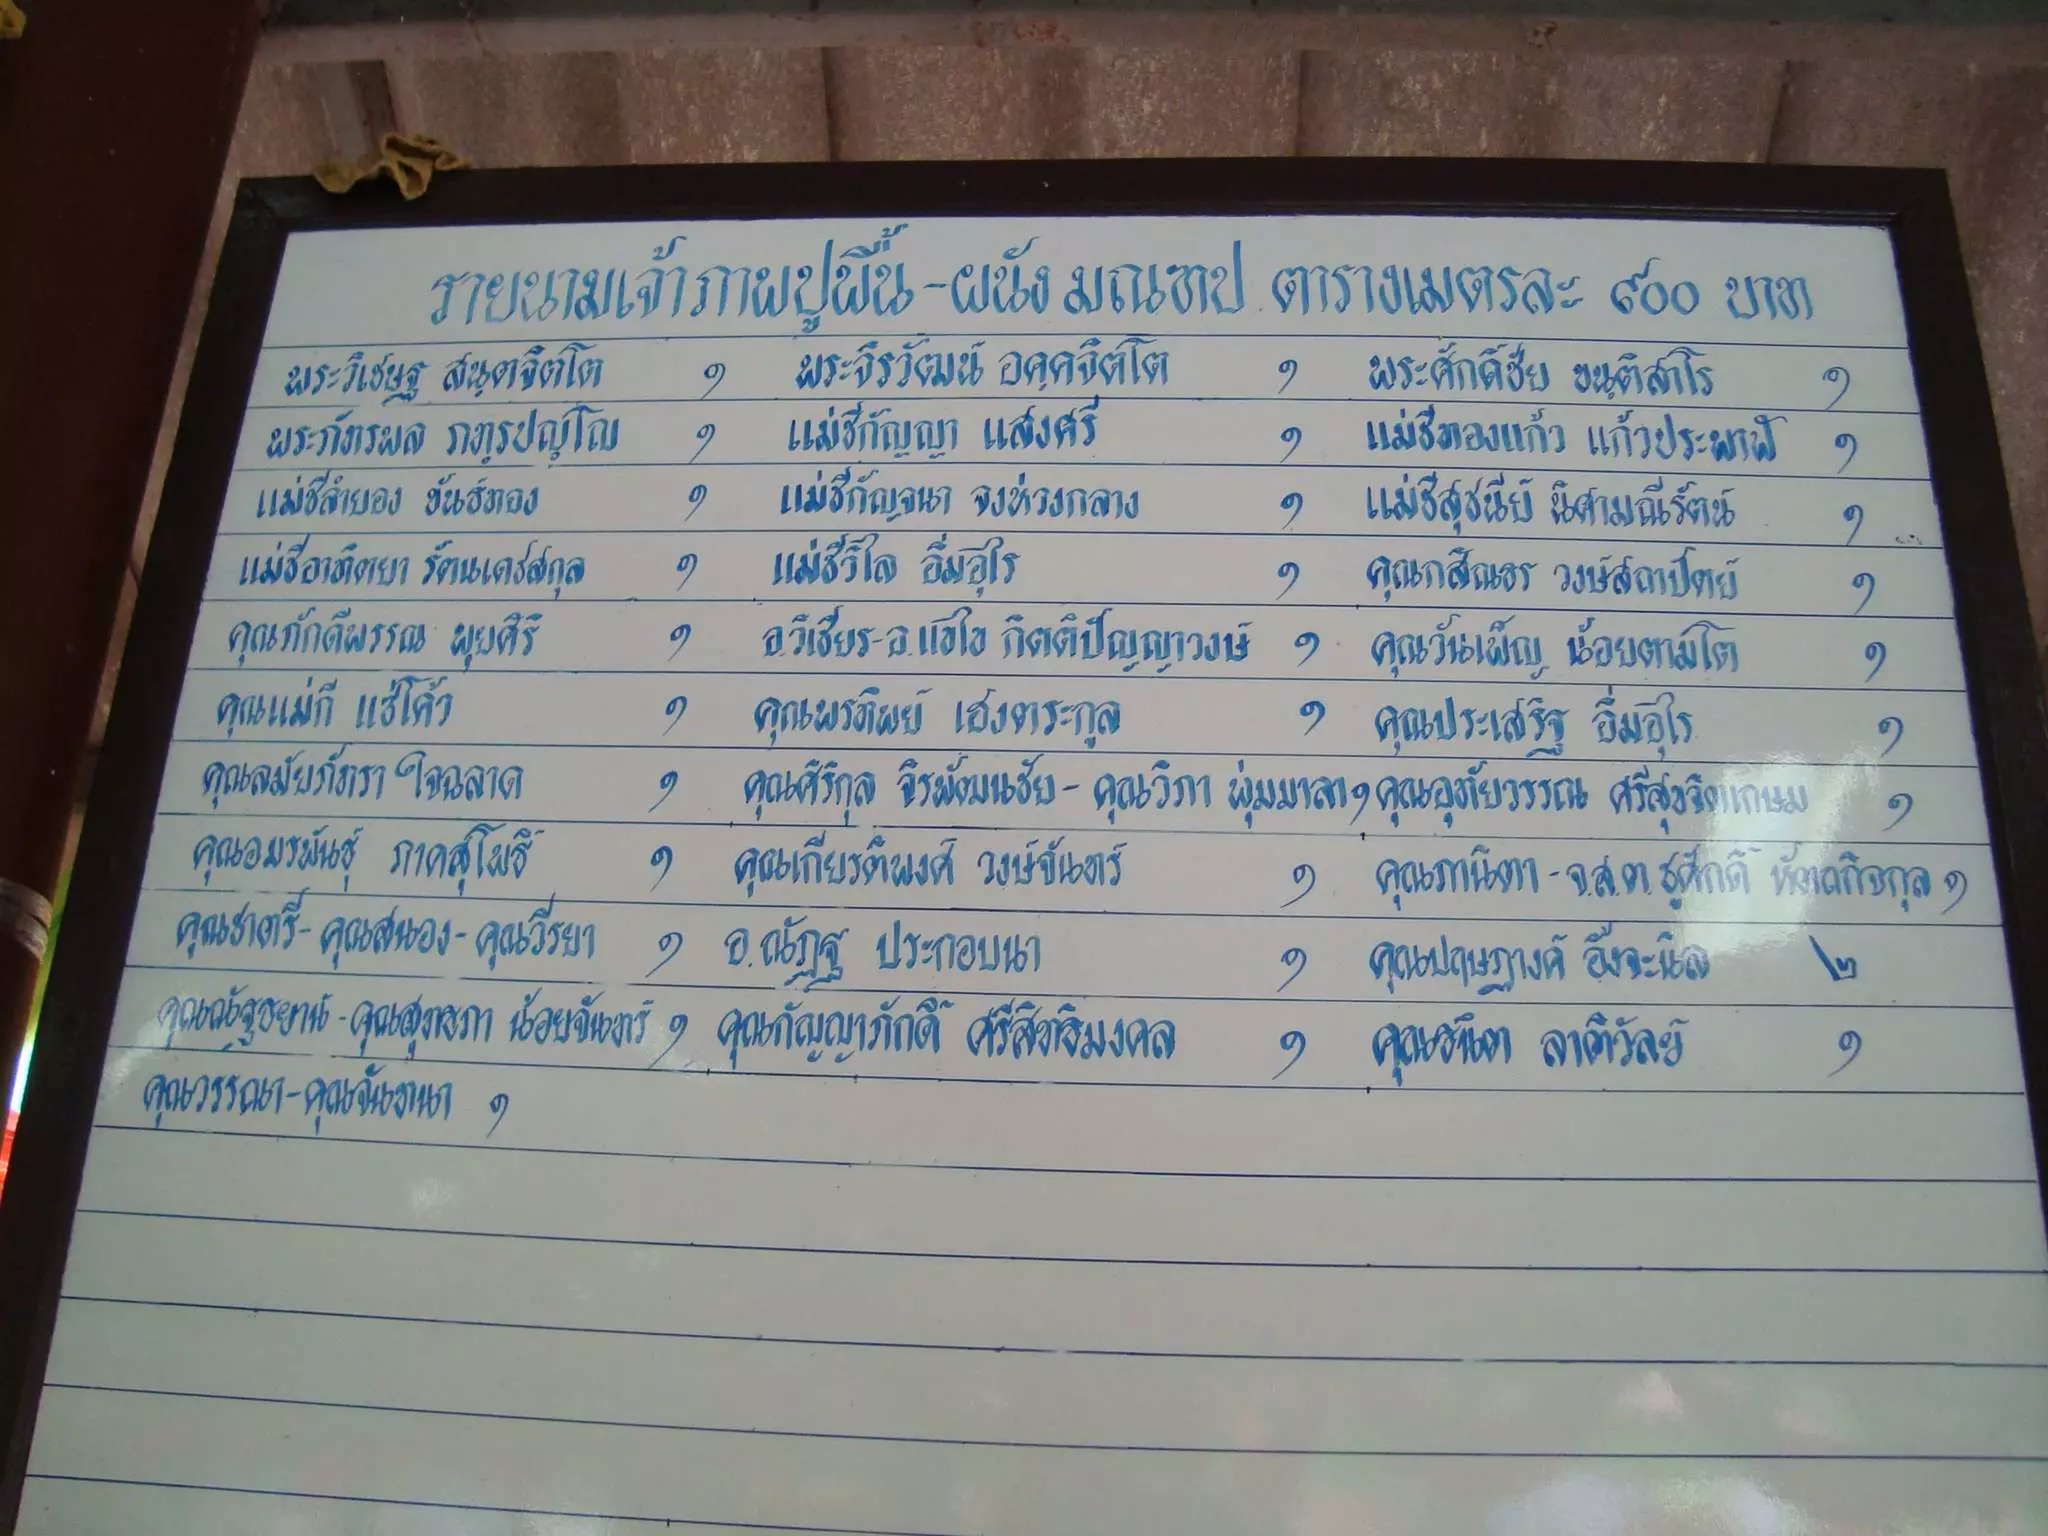 รายนามเจ้าภาพปูพื้น-ผนัง มณฑป ตารางเมตรละ ๙๐๐ บาท
พระวิเชษฐ สนฺตจิตฺโต ๑ พระจิรวัฒน์ อคฺคจิตฺโต ๑ พระศักดิ์ชัย ขนฺติสาโร ๑
พระภัทรพล ภทฺรปญฺโญ ๑ แม่ชีกัญญา แสงศรี ๑ แม่ชีทองแก้ว แก้วประพาฬ ๑
แม่ชีลำยอง ขันธ์ทอง ๑ แม่ชีกัญจนา จงห่วงกลาง ๑ แม่ชีสุชนีย์ นิศามณีรัตน์ ๑
แม่ชีอาทิตยา รัตนเดชสกุล ๑ แม่ชีวิไล อิ่มอุไร ๑ คุณกสิณธร วงษ์สถาปัตย์ ๑
คุณภักดีพรรณ พุยศิริ ๑ อ.วิเชียร-อ.แขไข กิตติปัญญาวงษ์ ๑ คุณวันเพ็ญ น้อยตามโต ๑
คุณแม่กี แซ่โค้ว ๑ คุณพรทิพย์ เฮงตระกูล ๑ คุณประเสริฐ อิ่มอุไร ๑
คุณลมัยภัทรา ใจฉลาด ๑ คุณศิริกุล จิรพัฒนชัย - คุณวิภา พุ่มมาลา ๑ คุณอุทัยวรรณ ศรีสุขจิตแกษม ๑
คุณอมรพันธุ์ ภาคสุโพธิ์ ๑ คุณเกียรติพงศ์ วงษ์จันทร์ ๑ คุณภานิตา - จ.ส.ต. ชูศักดิ์ หัตถกิจกุล ๑
คุณชาตรี-คุณสนอง-คุณวีรยา ๑ อ.ณัฏฐ ประกอบนา ๑ คุณปฤษฎางค์ อึ้งจะนิล ๒
คุณณัฐชยานน์ -คุณสุทธภา น้อยจันทร์ ๑ คุณกัญญาภักดิ์ ศรีสิทธิมงคล ๑ คุณธนิต ลาติวัลย์ ๑
คุณวรรณา-คุณจันทนา ๑